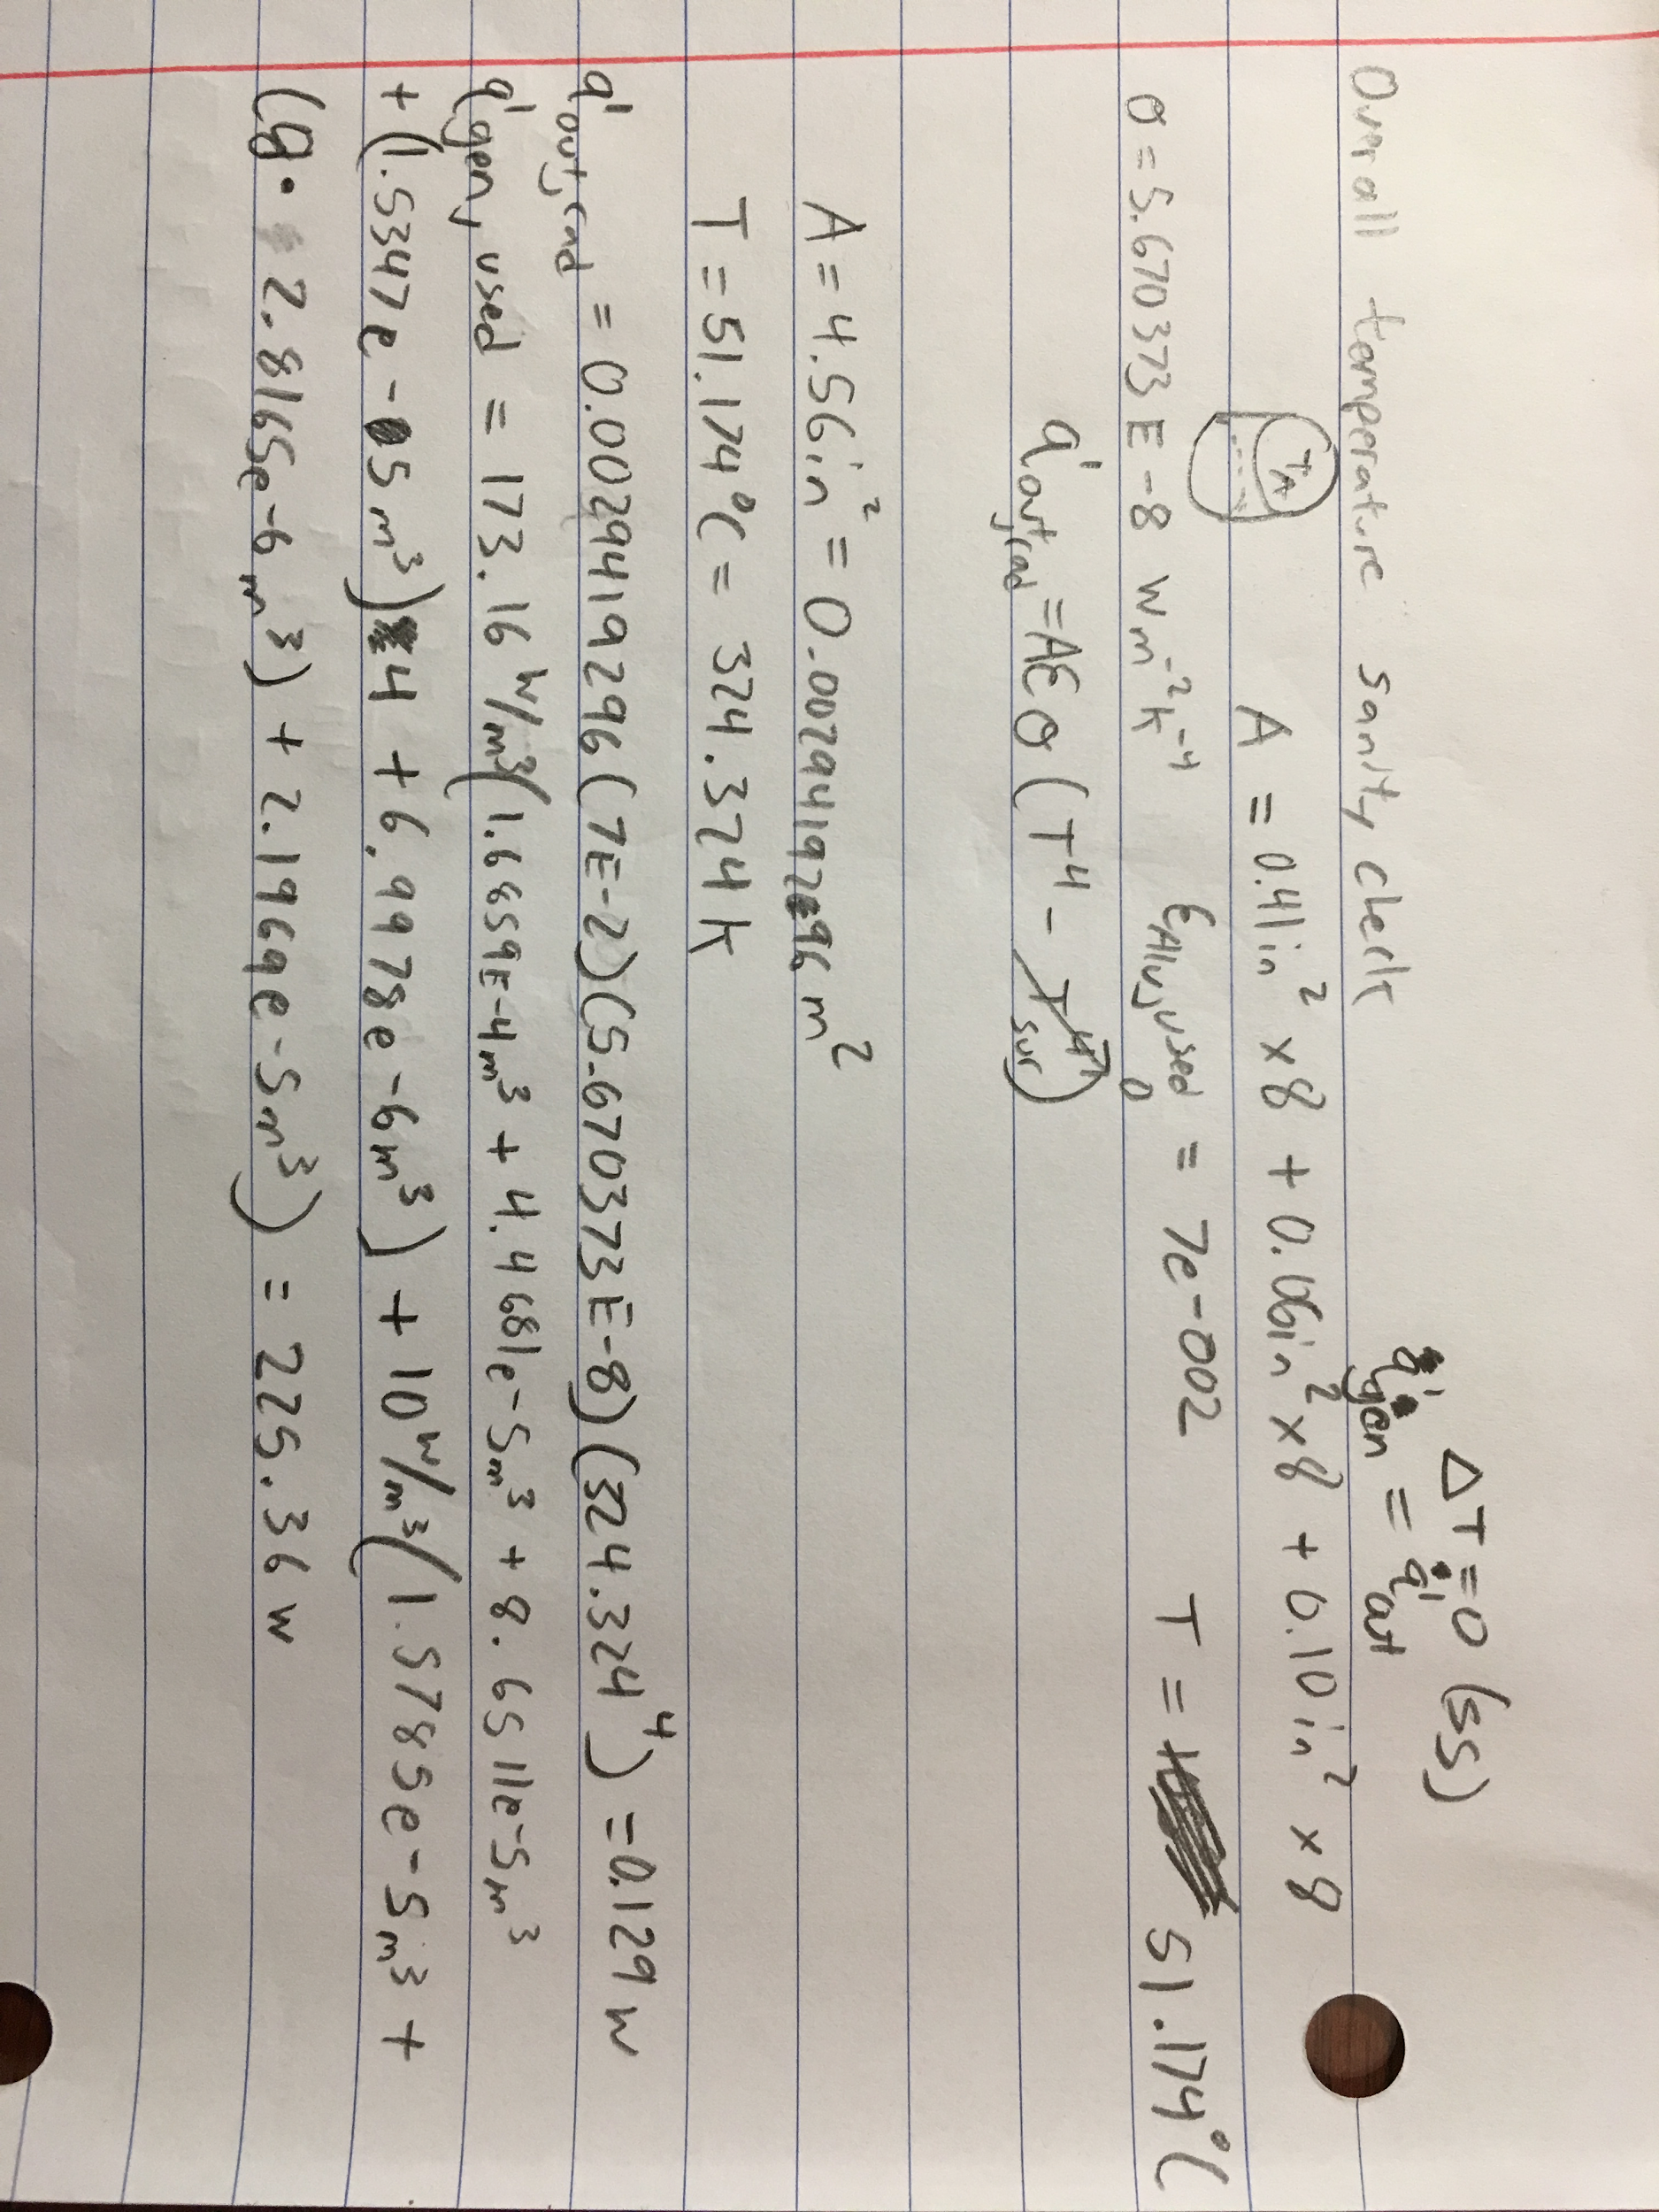 ΔT=0 (SS)
Overall temperature sanity check q̇gen = q̇out
A = 0.41in² x 8 + 0.06in² x 8 + 0.10in² x 8
TA
σ = 5.670373E-8 Wm⁻²K⁻⁴ εAllu, used = 7e-002 T = 51.174°C
q'out,rad = Aεσ(T⁴ - T⁴sur) 0
A = 4.56in² = 0.0029419296 m²
T = 51.174°C = 324.324K
q'out,rad = 0.0029419296(7E-2)(5.670373E-8)(324.324⁴) = 0.129W
q'gen, used = 173.16 W/m³(1.6659E-4m³ + 4.4681e-5m³ + 8.6511e-5m³
+ (1.5347e-5m³)4 + 6.9978e-6m³) + 10 W/m³(1.5785e-5m³ +
(8 · 2.8165e-6m³) + 2.1969e-5m³) = 225.36W